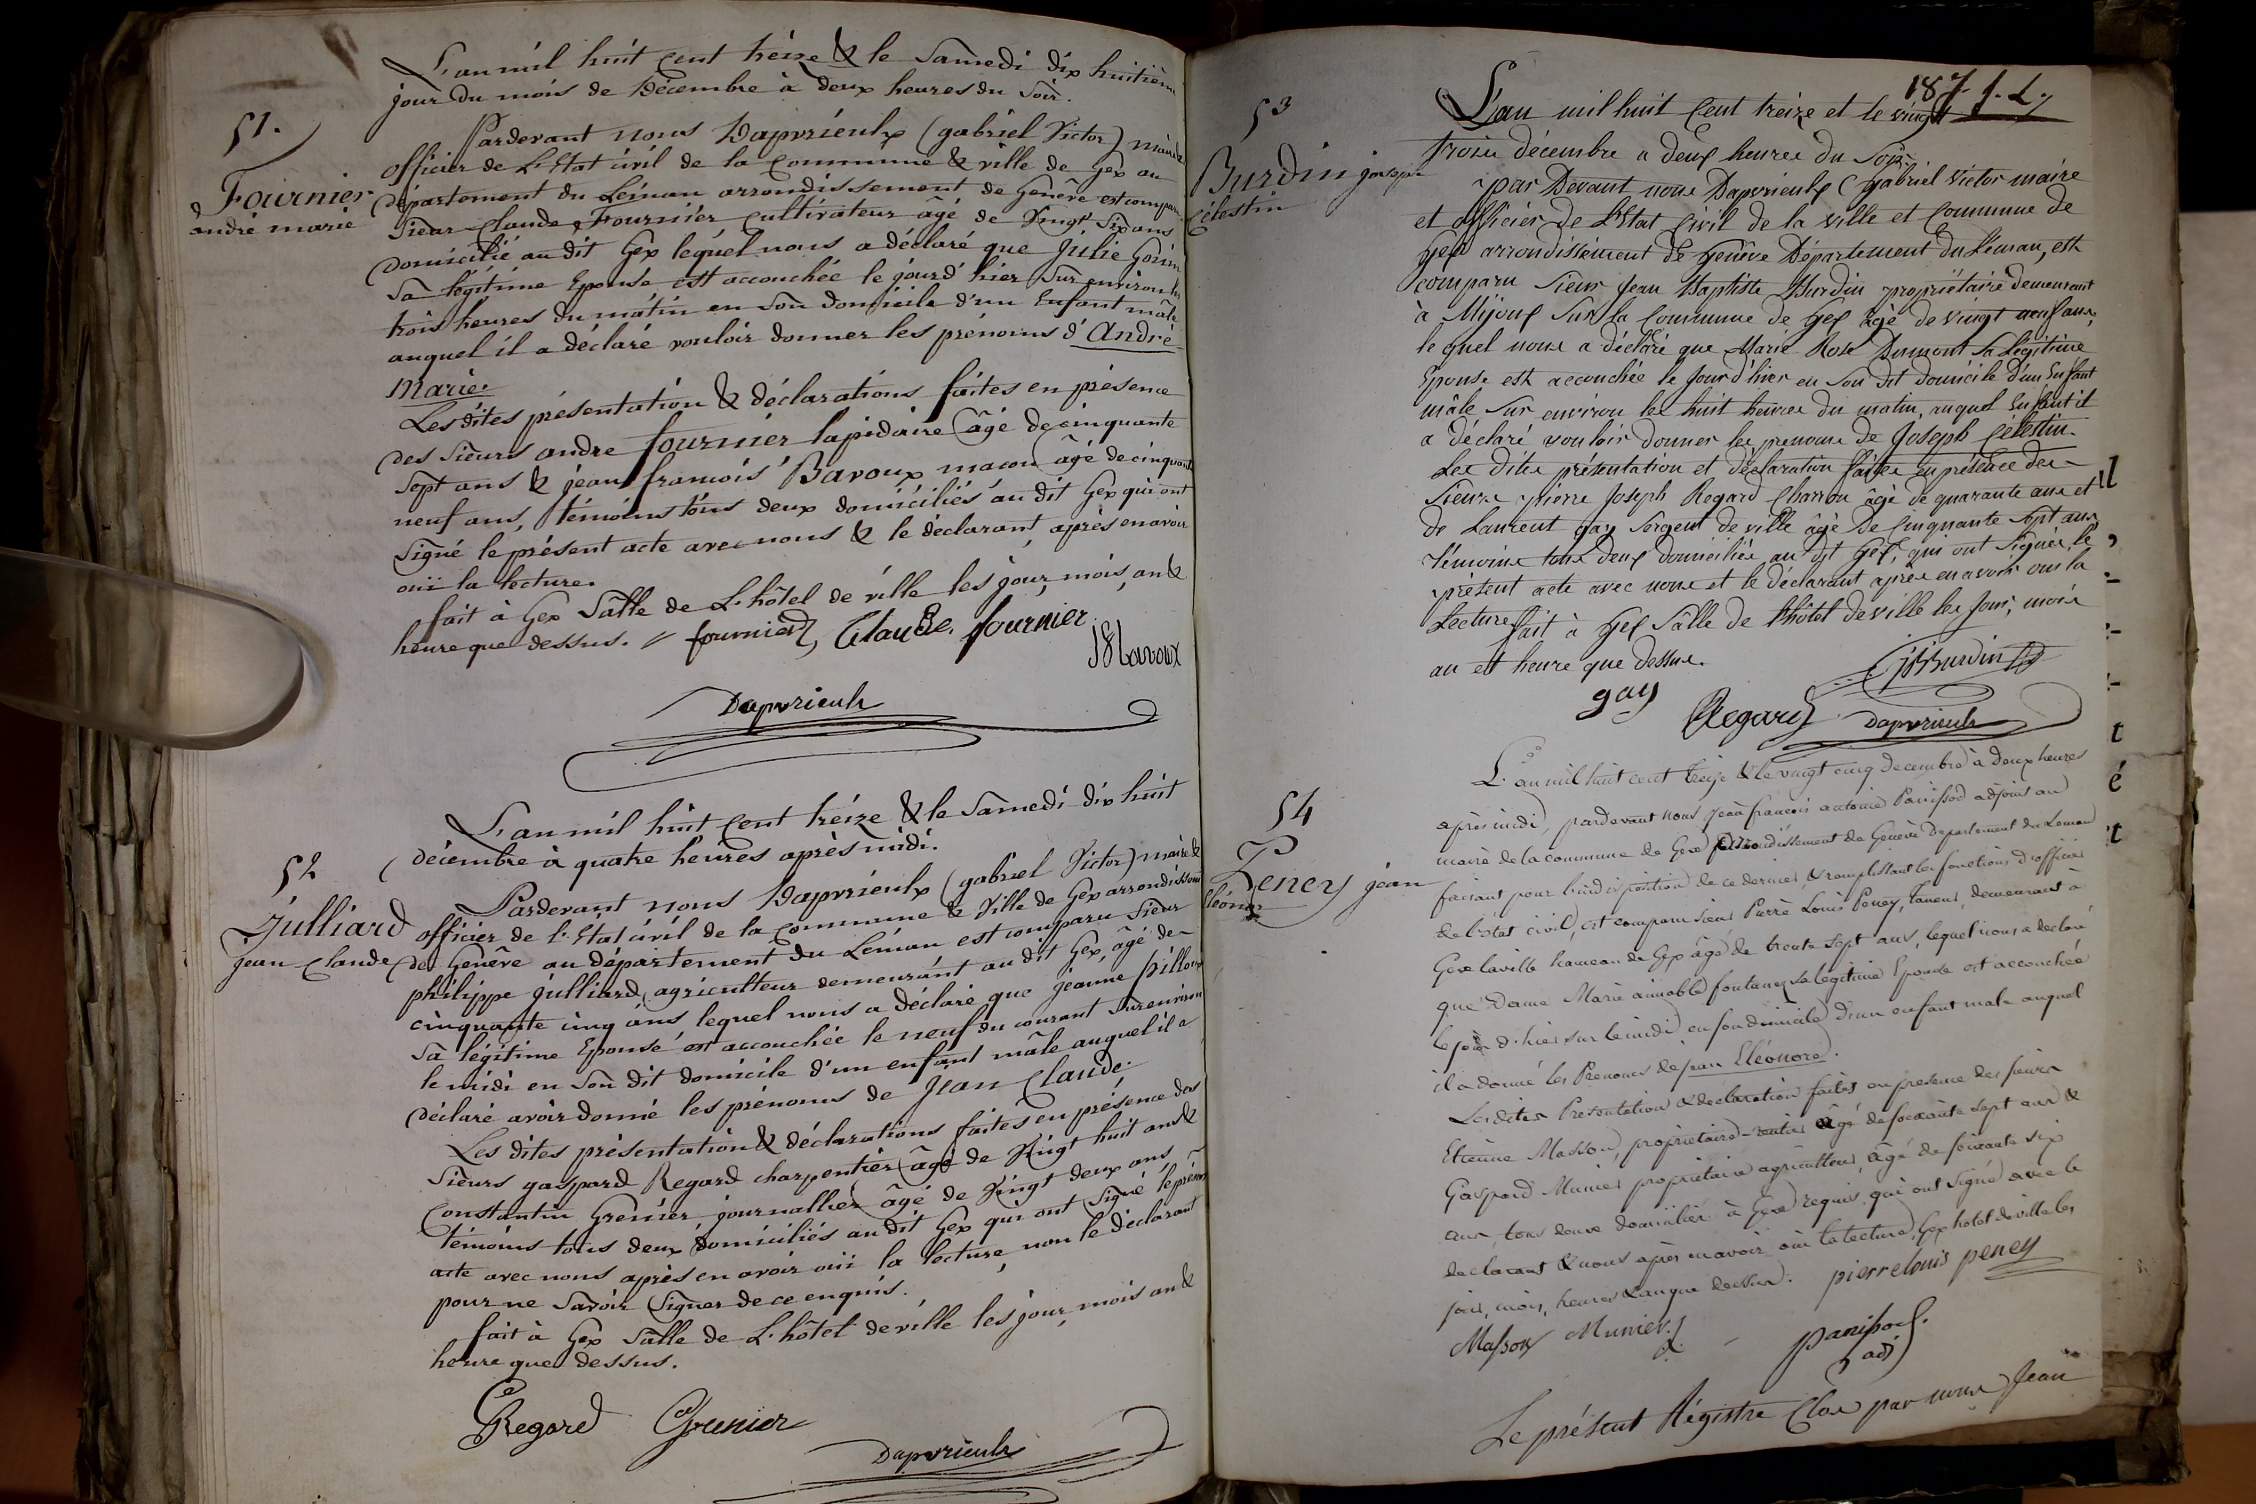 L'an mil huit cent treize & le samedi dix huitième
jour du mois de Décembre à deux heures du soir.
51.
Fournier
andré marie
Pardevant nous Dapvrieulx (gabriel Victor) maire &
officier de L'Etat civil de la Commune & ville de Gex au
département du Léman arrondissement de Genêve est comparu
Sieur Claude Fournier Cultivateur âgé de Vingt Six ans
domicilié au dit Gex lequel nous a déclaré que Julie
Sa légitime Epouse est accouchée le jourd'hier Sur environ les
trois heures du matin en son domicile d'un Enfant mâle
auquel il a déclaré vouloir donner les prénoms d'André
Marie.
Les dites présentation & déclarations faites en présence
des Sieurs andre fournier lapidaire âgé de cinquante
Sept ans & jean francois Bavoux macon âgé de cinquante
neuf ans, témoins tous deux domiciliés au dit Gex qui ont
Signé le présent acte avec nous & le déclarant, après en avoir
oui la lecture.
fait à Gex Salle de L'hôtel de ville les jour, mois, an &
heure que dessus. fournier, Claude fournier
Bavoux
Dapvrieulx
L'an mil huit cent treize & le Samedi dix huit
décembre à quatre heures après midi.
52
Julliard
jean Claude
Pardevant nous Dapvrieulx (gabriel Victor) maire &
officier de l'Etat civil de la commune & Ville de Gex arrondissement
de Genêve au département du Léman est comparu Sieur
philippe julliard, agriculteur demeurant au dit Gex, âgé de
cinquante cinq ans lequel nous a déclaré que jeanne pilloux
Sa légitime Epouse est accouchée le neuf du courant Sur environ
le midi en Son dit domicile d'un enfant mâle auquel il a
déclaré avoir donné les prénoms de Jean Claude.
Les dites présentation & déclarations faites en présence des
Sieurs gaspard Regard charpentier âgé de Vingt huit ans &
Constantin Grenier journallier âgé de Vingt deux ans,
témoins tous deux domiciliés au dit Gex qui ont Signé le présent
acte avec nous après en avoir oui la lecture, non le déclarant
pour ne Savoir Signer de ce enquis.
fait à Gex Salle de L'hôtel de ville les jour, mois an &
heure que dessus.
Regard Grenier
Dapvrieulx
187. J. L.
53
Burdin joseph
Célestin
L'an mil huit Cent treize et le vingt
trois décembre a deux heures du Soir.
par Devant nous Dapvrieulx (gabriel Victor maire
et officier de L'Etat Civil de la ville et Commune de
Gex arrondissement de Genêve Département du Léman, est
comparu Sieur Jean Baptiste Burdin propriétaire demeurant
à Mijoux Sur la Commune de Gex âgé de Vingt neuf ans,
lequel nous a déclaré que Marie Rose Dumont Sa Légitime
Epouse est accouchée le Jourd'hier en Son dit domicile d'un Enfant
mâle Sur environ les huit heures du matin, auquel Enfant il
a déclaré vouloir donner les prenoms de Joseph Célestin.
Les dites présentation et déclaration faites en présence des
Sieurs pierre Joseph Regard Charron âgé de quarante ans et
de Laurent gay Sergent de ville âgé de Cinquante Sept ans
témoins tous deux domiciliés au dit Gex, qui ont Signés le
présent acte avec nous et le déclarant après en avoir ouis la
Lecture fait à Gex Sâlle de l'hôtel de ville les Jour, mois
an et heure que dessus.
JBBurdin
gay
Regard Dapvrieulx
54
Peney jean
Eléonor
L'an mil huit cent treize & le vingt cinq decembre à deux heures
après midi, pardevant nous Jean francois antoine Panissod adjoint au
maire de la commune de Gex arrondissement de Genève Departement du Leman
faisant pour l'indisposition de ce dernier, & remplissant les fonctions d'officier
de l'état civil, est comparu sieur Pierre Louis Peney, taneur, demeurant à
Gex laville hameau de Gex âgé de trente sept ans, lequel nous a declaré
que Dame Marie aimable fontanez sa legitime Epouse est accouchée
le jour d'hier sur le midi en son domicile d'un enfant male auquel
il a donné les Prenoms de jean Eléonore.
Les dites Presentation & declaration faites en presence des sieurs
Etienne Masson, propriétaire-rentier âgé de soixante sept ans &
Gaspard Munier proprietaire agriculteur, âgé de soixante six
ans, tous deux domiciliés à Gex requis qui ont signé avec le
declarant & nous après en avoir oui la lecture, Gex hotel de ville les
jour, mois, heures & an que dessus. pierre louis peney
Masson Munier
panissod
adj
Le présent Régistre Clos par nous Jean